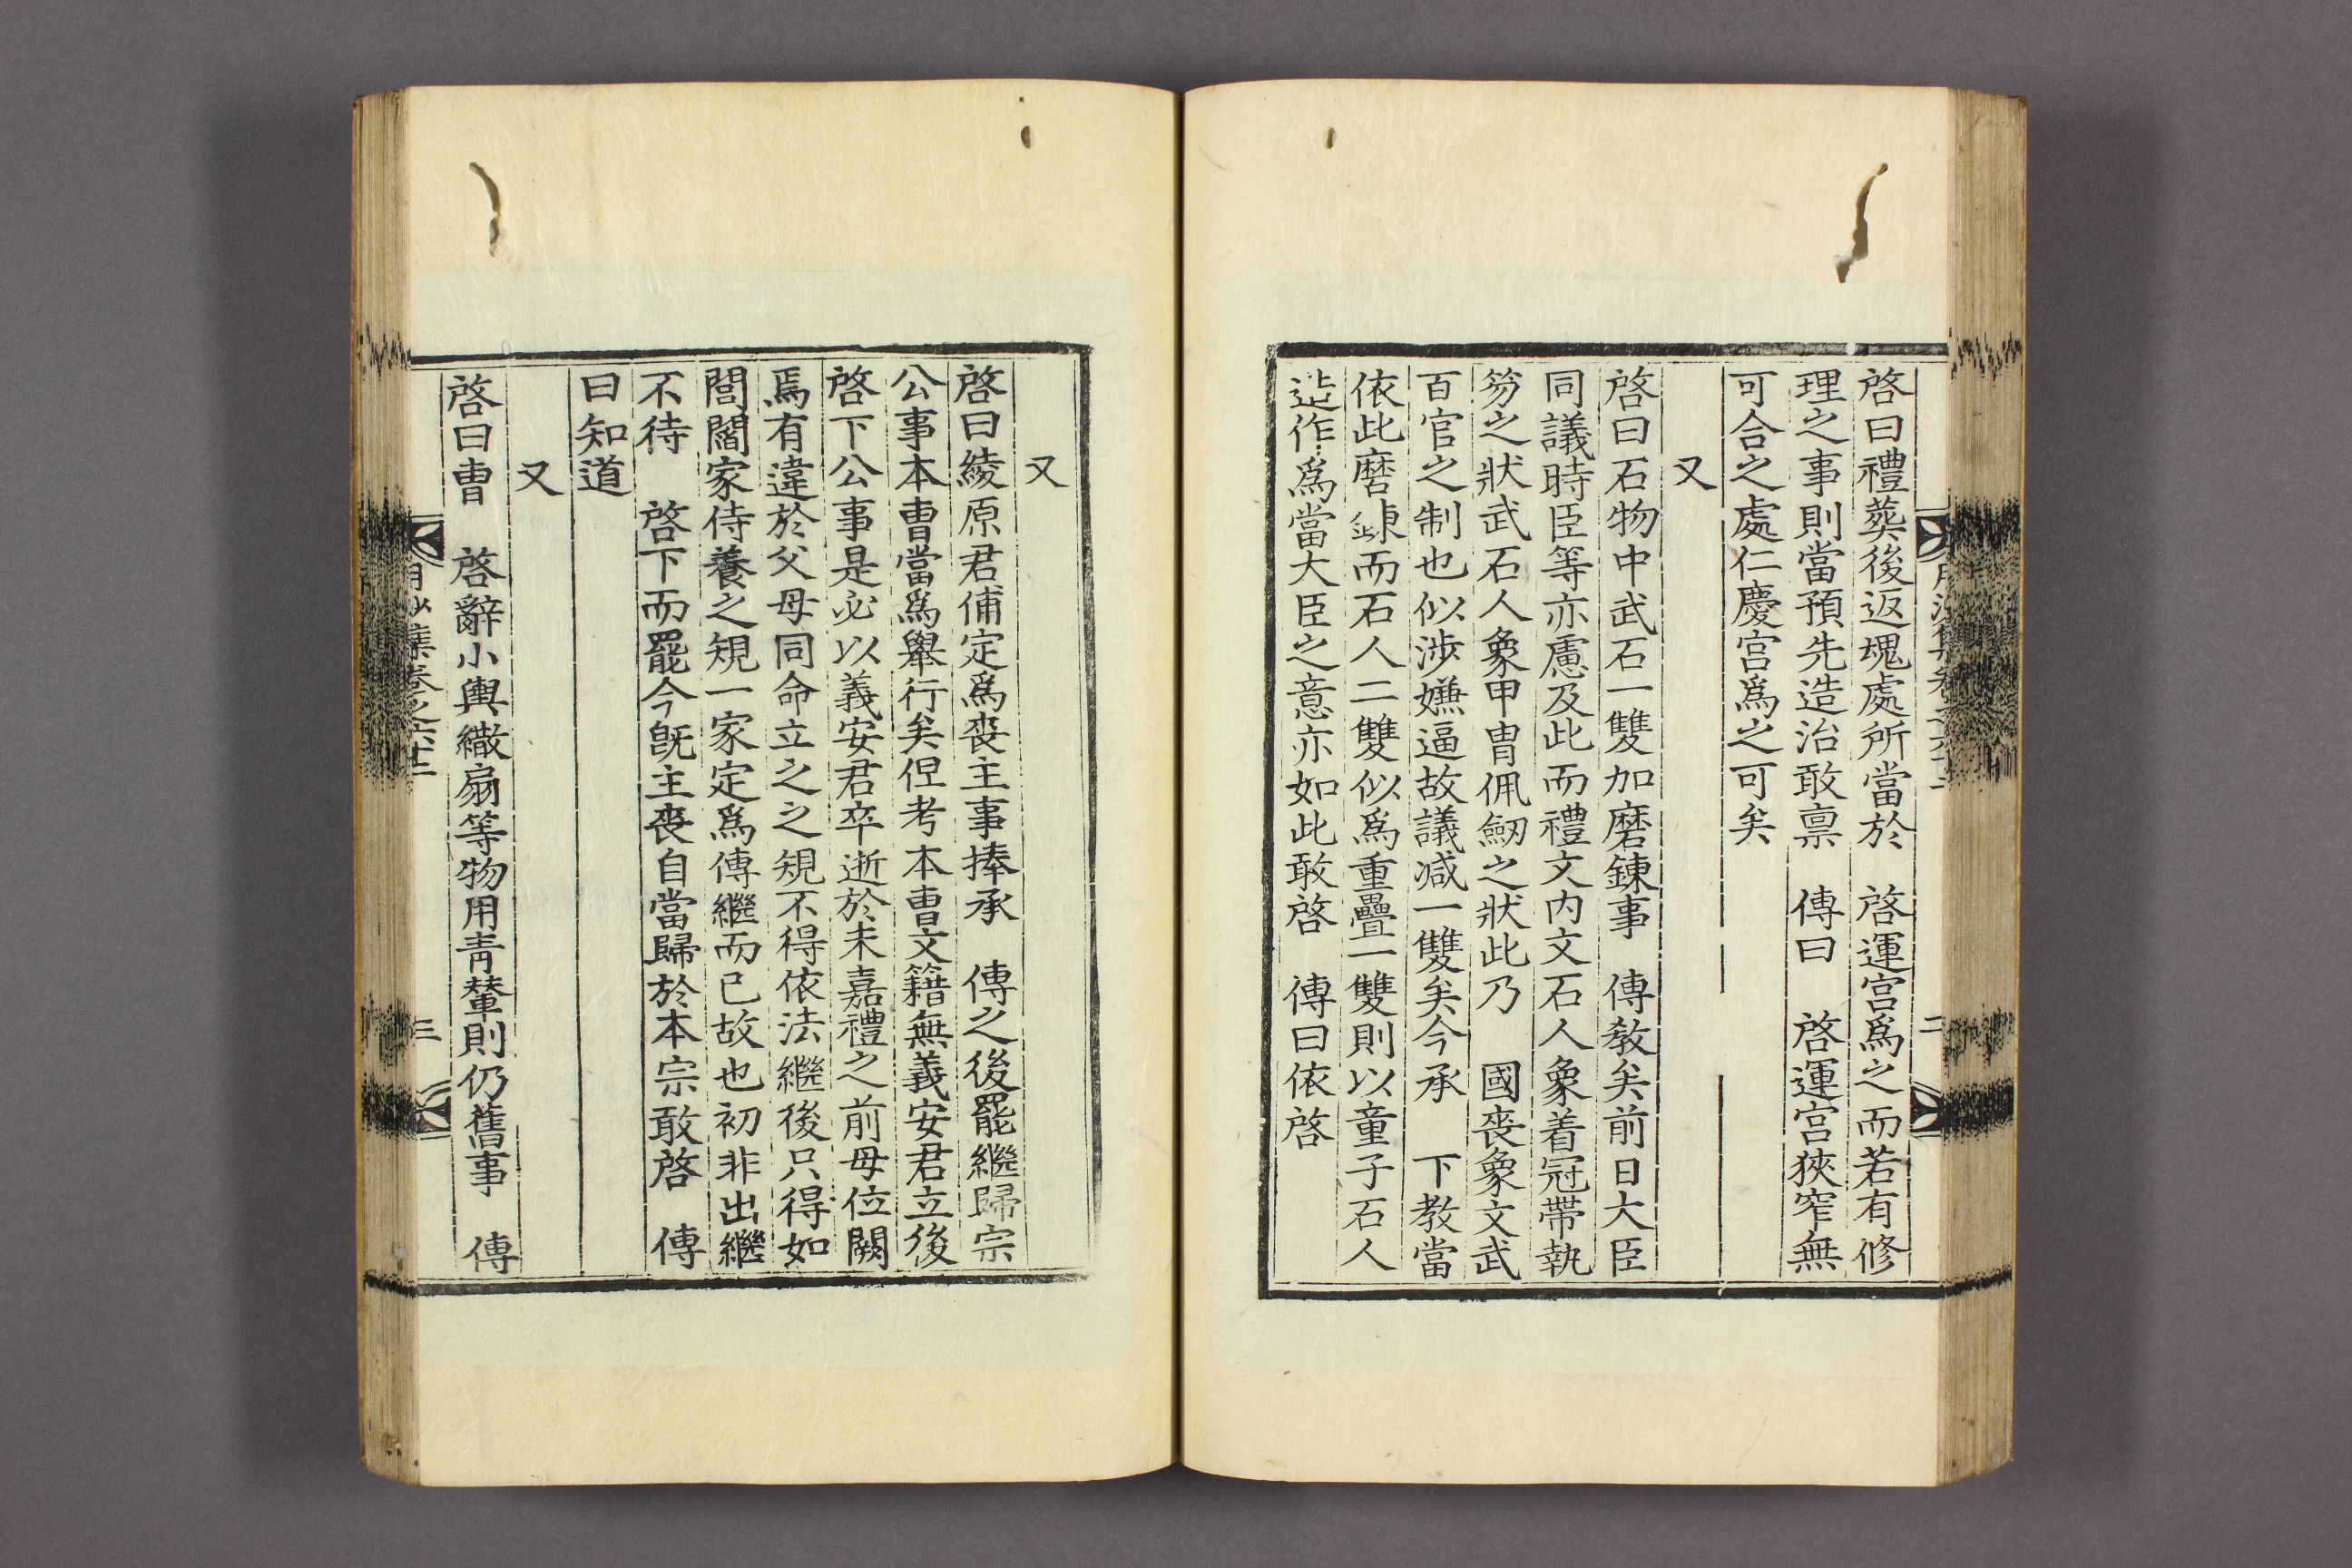 啓曰禮葬後返魂處所當於　啓運宮爲之而若有修
理之事則當預先造治敢禀　傳曰　啓運宮狹窄無
可合之處仁慶宮爲之可矣
又
啓曰石物中武石一雙加磨鍊事　傳敎矣前日大臣
同議時臣等亦慮及此而禮文内文石人象着冠帶執
笏之狀武石人象甲冑佩劒之狀此乃　國喪象文武
百官之制也似涉嫌逼故議减一雙矣今承　下教當
依此磨鍊而石人二雙似爲重疊一雙則以童子石人
造作爲當大臣之意亦如此敢啓　傳曰依啓
又
啓曰綾原君俌定爲喪主事捧承　傳之後罷繼歸宗
公事本曹當爲舉行矣但考本曹文籍無義安君立後
啓下公事是必以義安君卒逝於未嘉禮之前母位闕
焉有違於父母同命立之之規不得依法繼後只得如
閭閻家侍養之規一家定爲傳繼而已故也初非出繼
不待　啓下而罷今既主喪自當歸於本宗敢啓　傳
曰知道
又
啓曰曹　啓辭小輿繖扇等物用靑輦則仍舊事　傳
月沙集卷之六十二
三